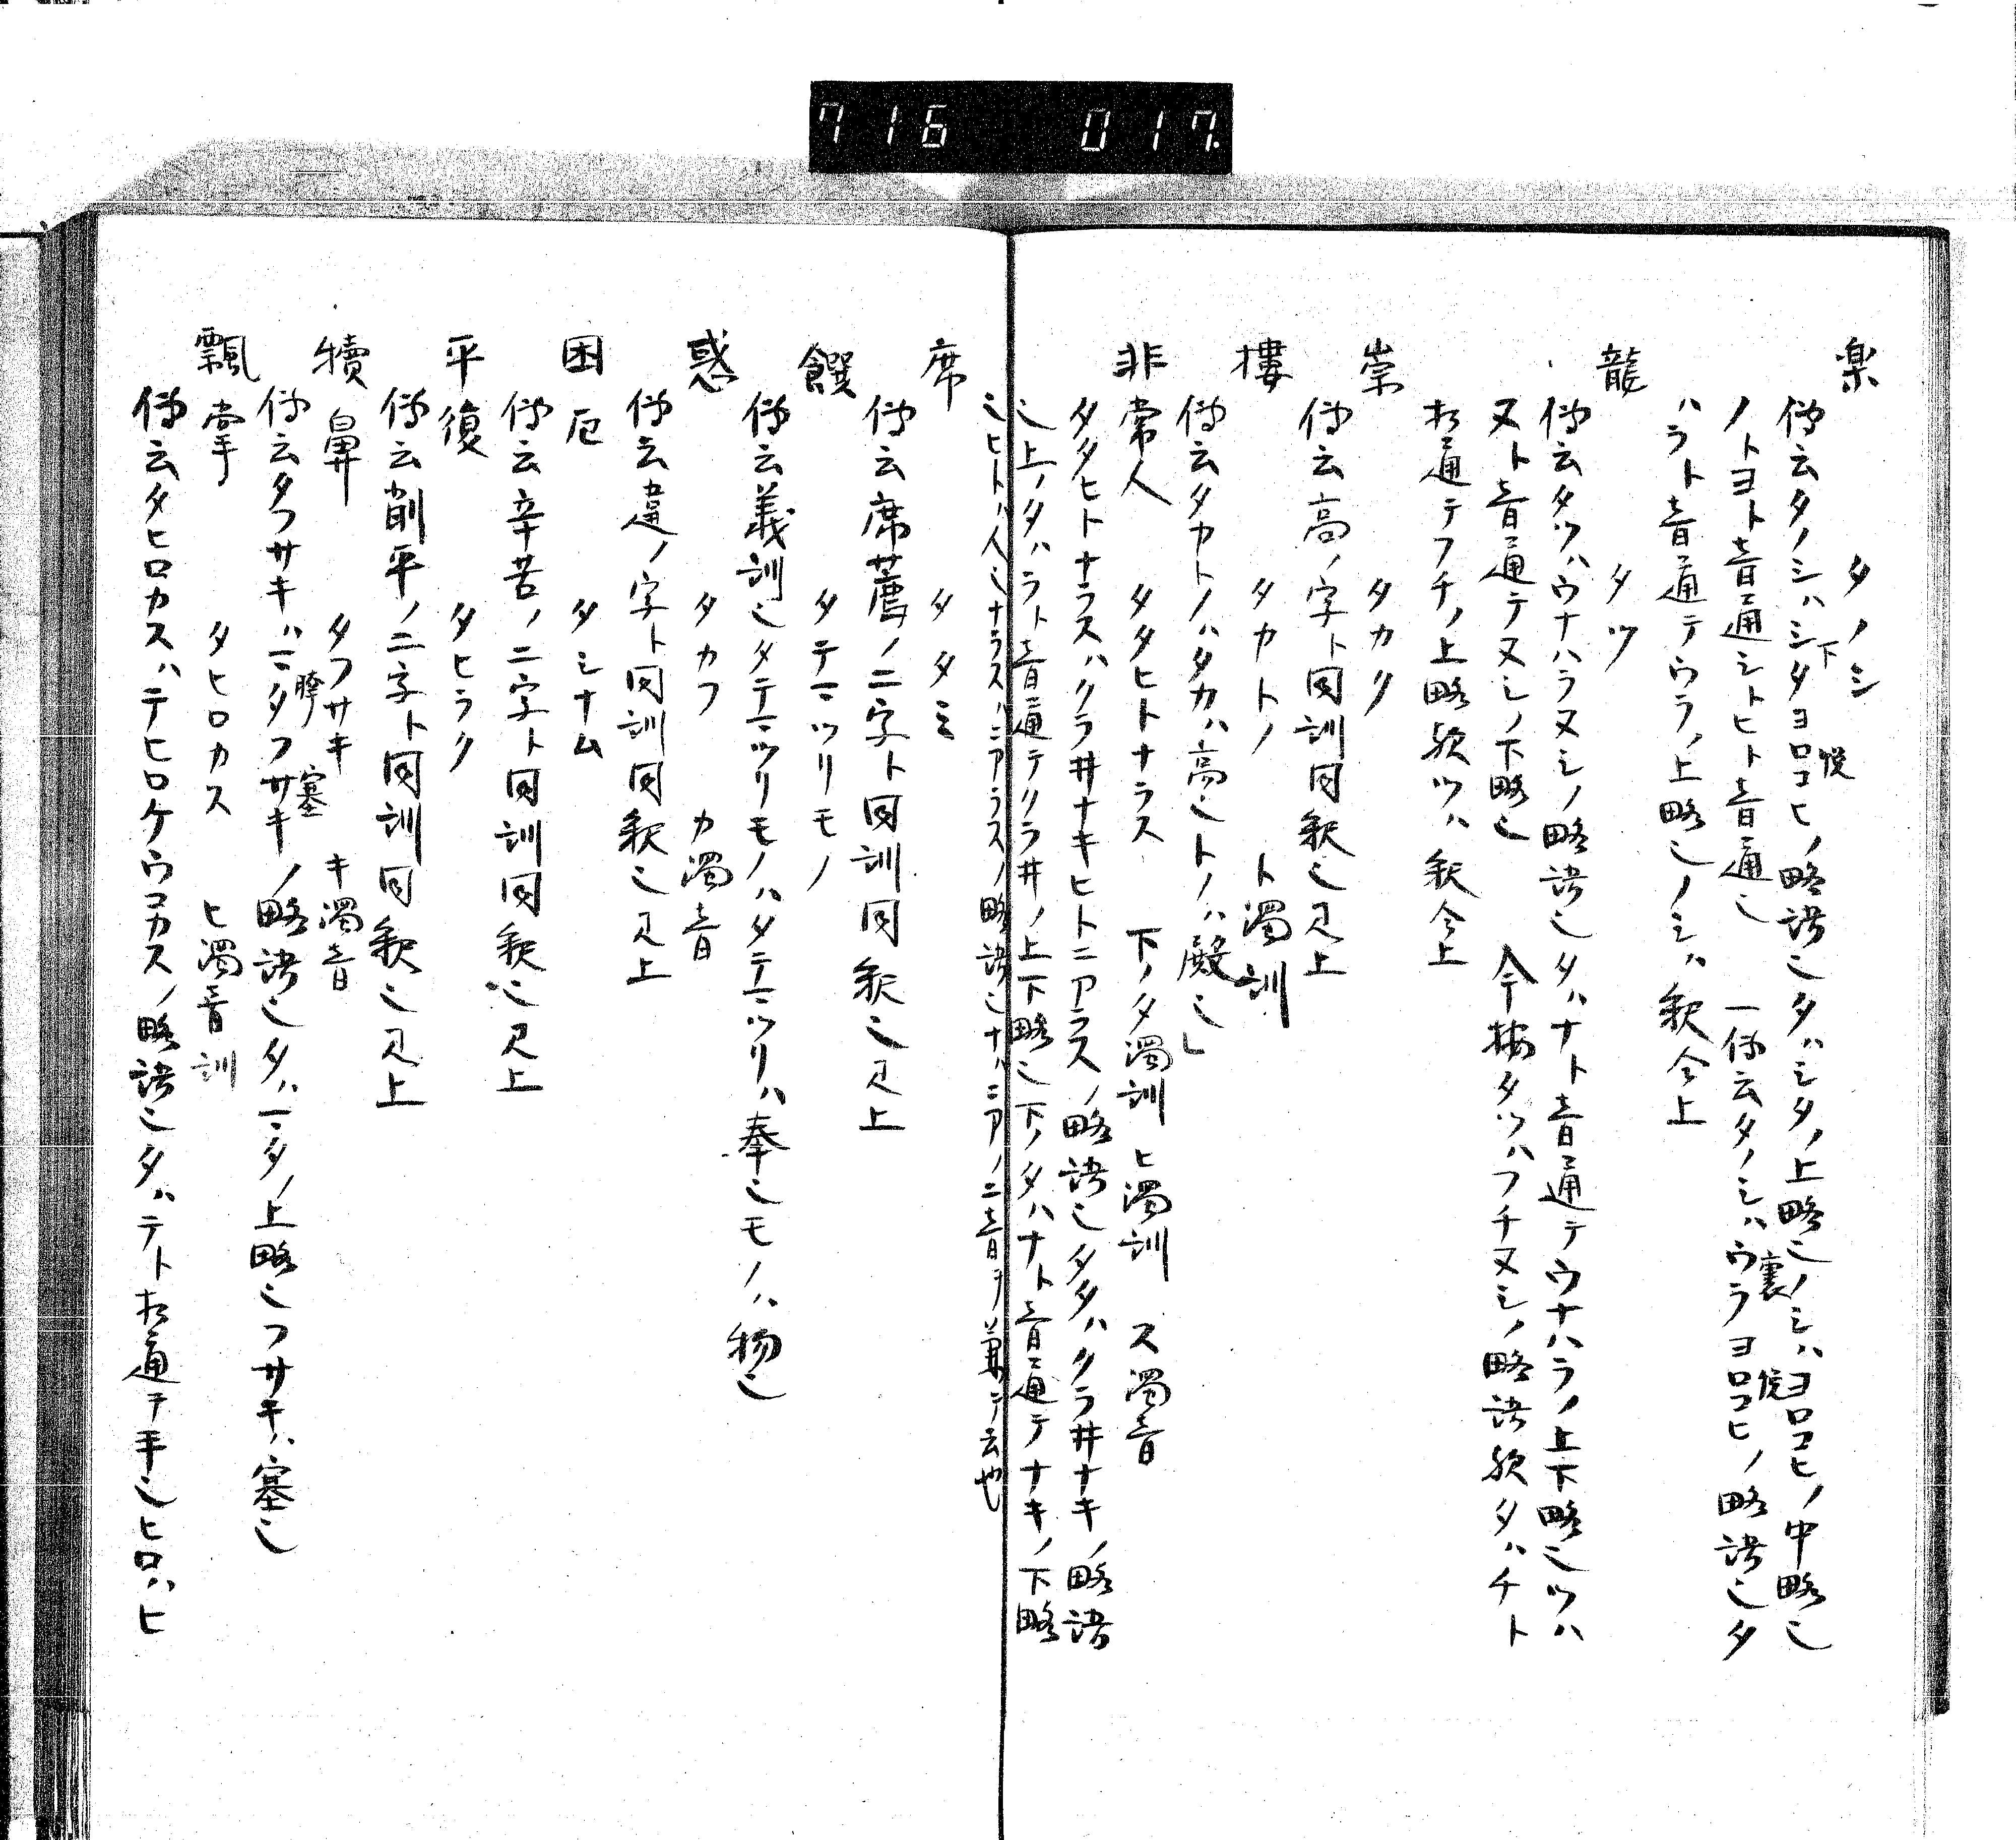 716 017.
楽　タノシ
傳云タノシハシタヨロコヒノ略語也タハシタノ上略也ノシハヨロコヒノ中略也
下　悦
ノトヨト音通シトヒト音通也　一傳云タノシハウラヨロコヒノ略語也タ
裏　悦
ハラト音通テウラノ上略也ノシハ釈令上
龍　タツ
傳云タツハウナハラヌシノ略語也タハナト音通テウナハラノ上下略也ツハ
ヌト音通テヌシノ下略也　今按タツハフチヌシノ略語欤タハチト
相通テフチノ上略欤ツハ釈令上
崇　タカク
傳云高ノ字ト同訓同釈也見上
樓　タカトノ　ト濁訓
傳云タカトノハタカハ高也トノハ殿也」
非常人　タタヒトナラス　下ノタ濁訓　ヒ濁訓　ス濁音
タタヒトナラスハクラ井ナキヒトニアラスノ略語也タタハクラ井ナキノ略語
也上ノタハラト音通テクラ井ノ上下略也下ノタハナト音通テナキノ下略
也ヒトハ人也ナラスハニアラスノ略語也ナハニアノ二音ヲ兼テ云也
席　タタミ
傳云席薦ノ二字ト同訓同釈也見上
饌　タテマツリモノ
傳云義訓也タテマツリモノハタテマツリハ奉也モノハ物也
惑　タカフ　カ濁音
傳云違ノ字ト同訓同釈也見上
困厄　タシナム
傳云辛苦ノ二字ト同訓同釈也見上
平復　タヒラク
傳云削平ノ二字ト同訓同釈也見上
犢鼻　タフサキ　キ濁音
傳云タフサキハマタフサキノ略語也タハマタノ上略也フサキハ塞也
胯　塞
飄掌　タヒロカス　ヒ濁音訓
傳云タヒロカスハテヒロケウコカスノ略語也タハテト相通テ手也ヒロハヒ